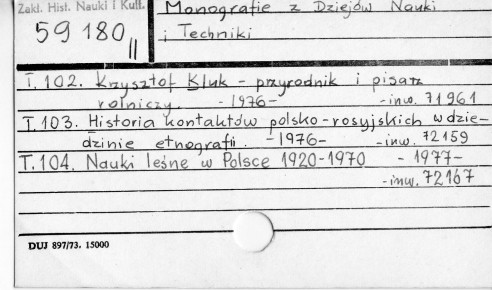 Zakł. Hist. Nauki i Kult.
Monografie z Dziejów Nauki
59180 II
i Techniki
T. 102. Krzysztof Kluk - przyrodnik i pisarz
rolniczy. -1976- -inw. 71961
T. 103. Historia kontaktów polsko-rosyjskich w dzie-
dzinie etnografii. -1976- -inw. 72159
T. 104. Nauki leśne w Polsce 1920-1970 - 1977-
-inw. 72167
DUJ 897/73. 15000